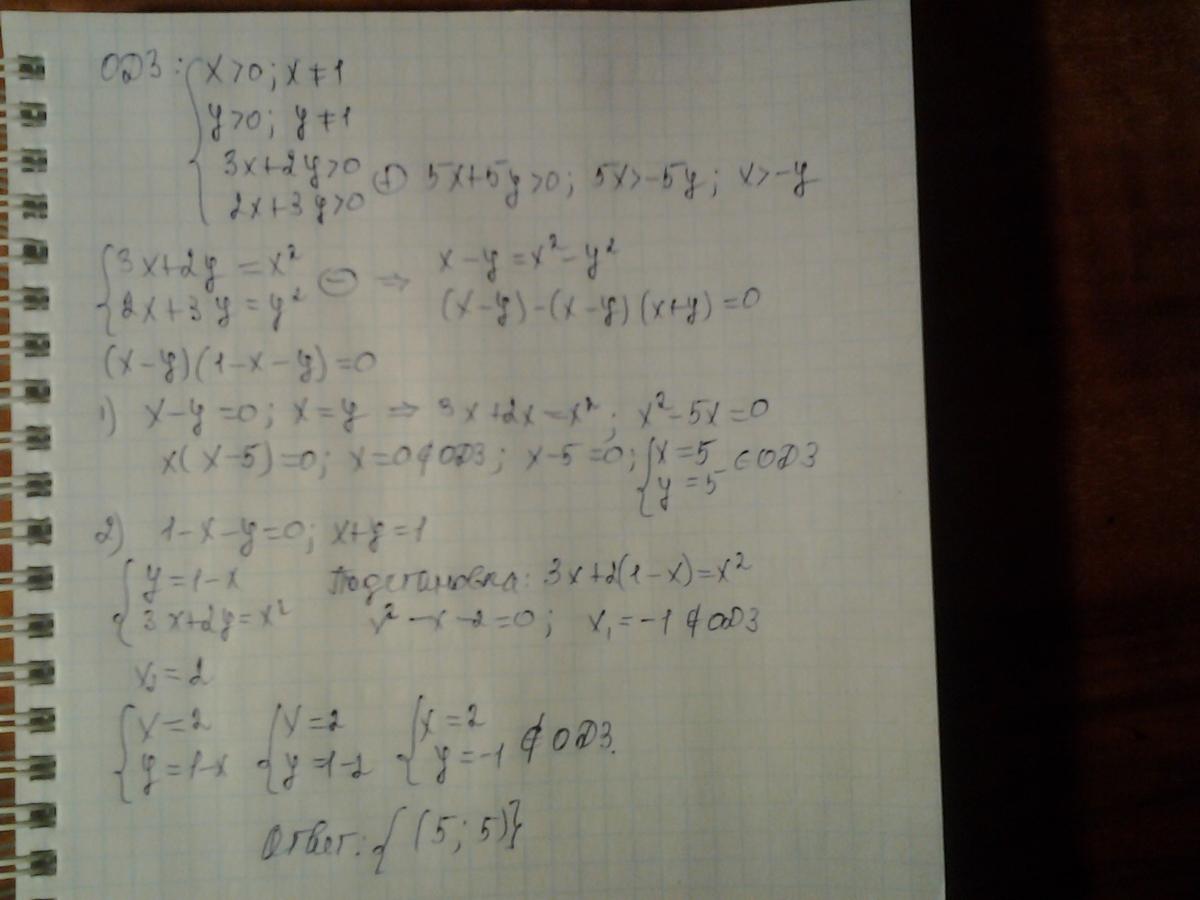 ОДЗ: { x>0; x≠1
y>0; y≠1
3x+2y>0
2x+3y>0 ⊕ 5x+5y>0; 5x>-5y; x>-y
{ 3x+2y=x² ⊖ ⇒ x-y=x²-y²
2x+3y=y² (x-y)-(x-y)(x+y)=0
(x-y)(1-x-y)=0
1) x-y=0; x=y ⇒ 3x+2x=x²; x²-5x=0
x(x-5)=0; x=0∉ОДЗ; x-5=0; { x=5 ∈ОДЗ
y=5
2) 1-x-y=0; x+y=1
{ y=1-x Подстановка: 3x+2(1-x)=x²
3x+2y=x² x²-x-2=0; x₁=-1∉ОДЗ
x₂=2
{ x=2 { x=2 { x=2 ∉ОДЗ.
y=1-x y=1-2 y=-1
Ответ: {(5; 5)}